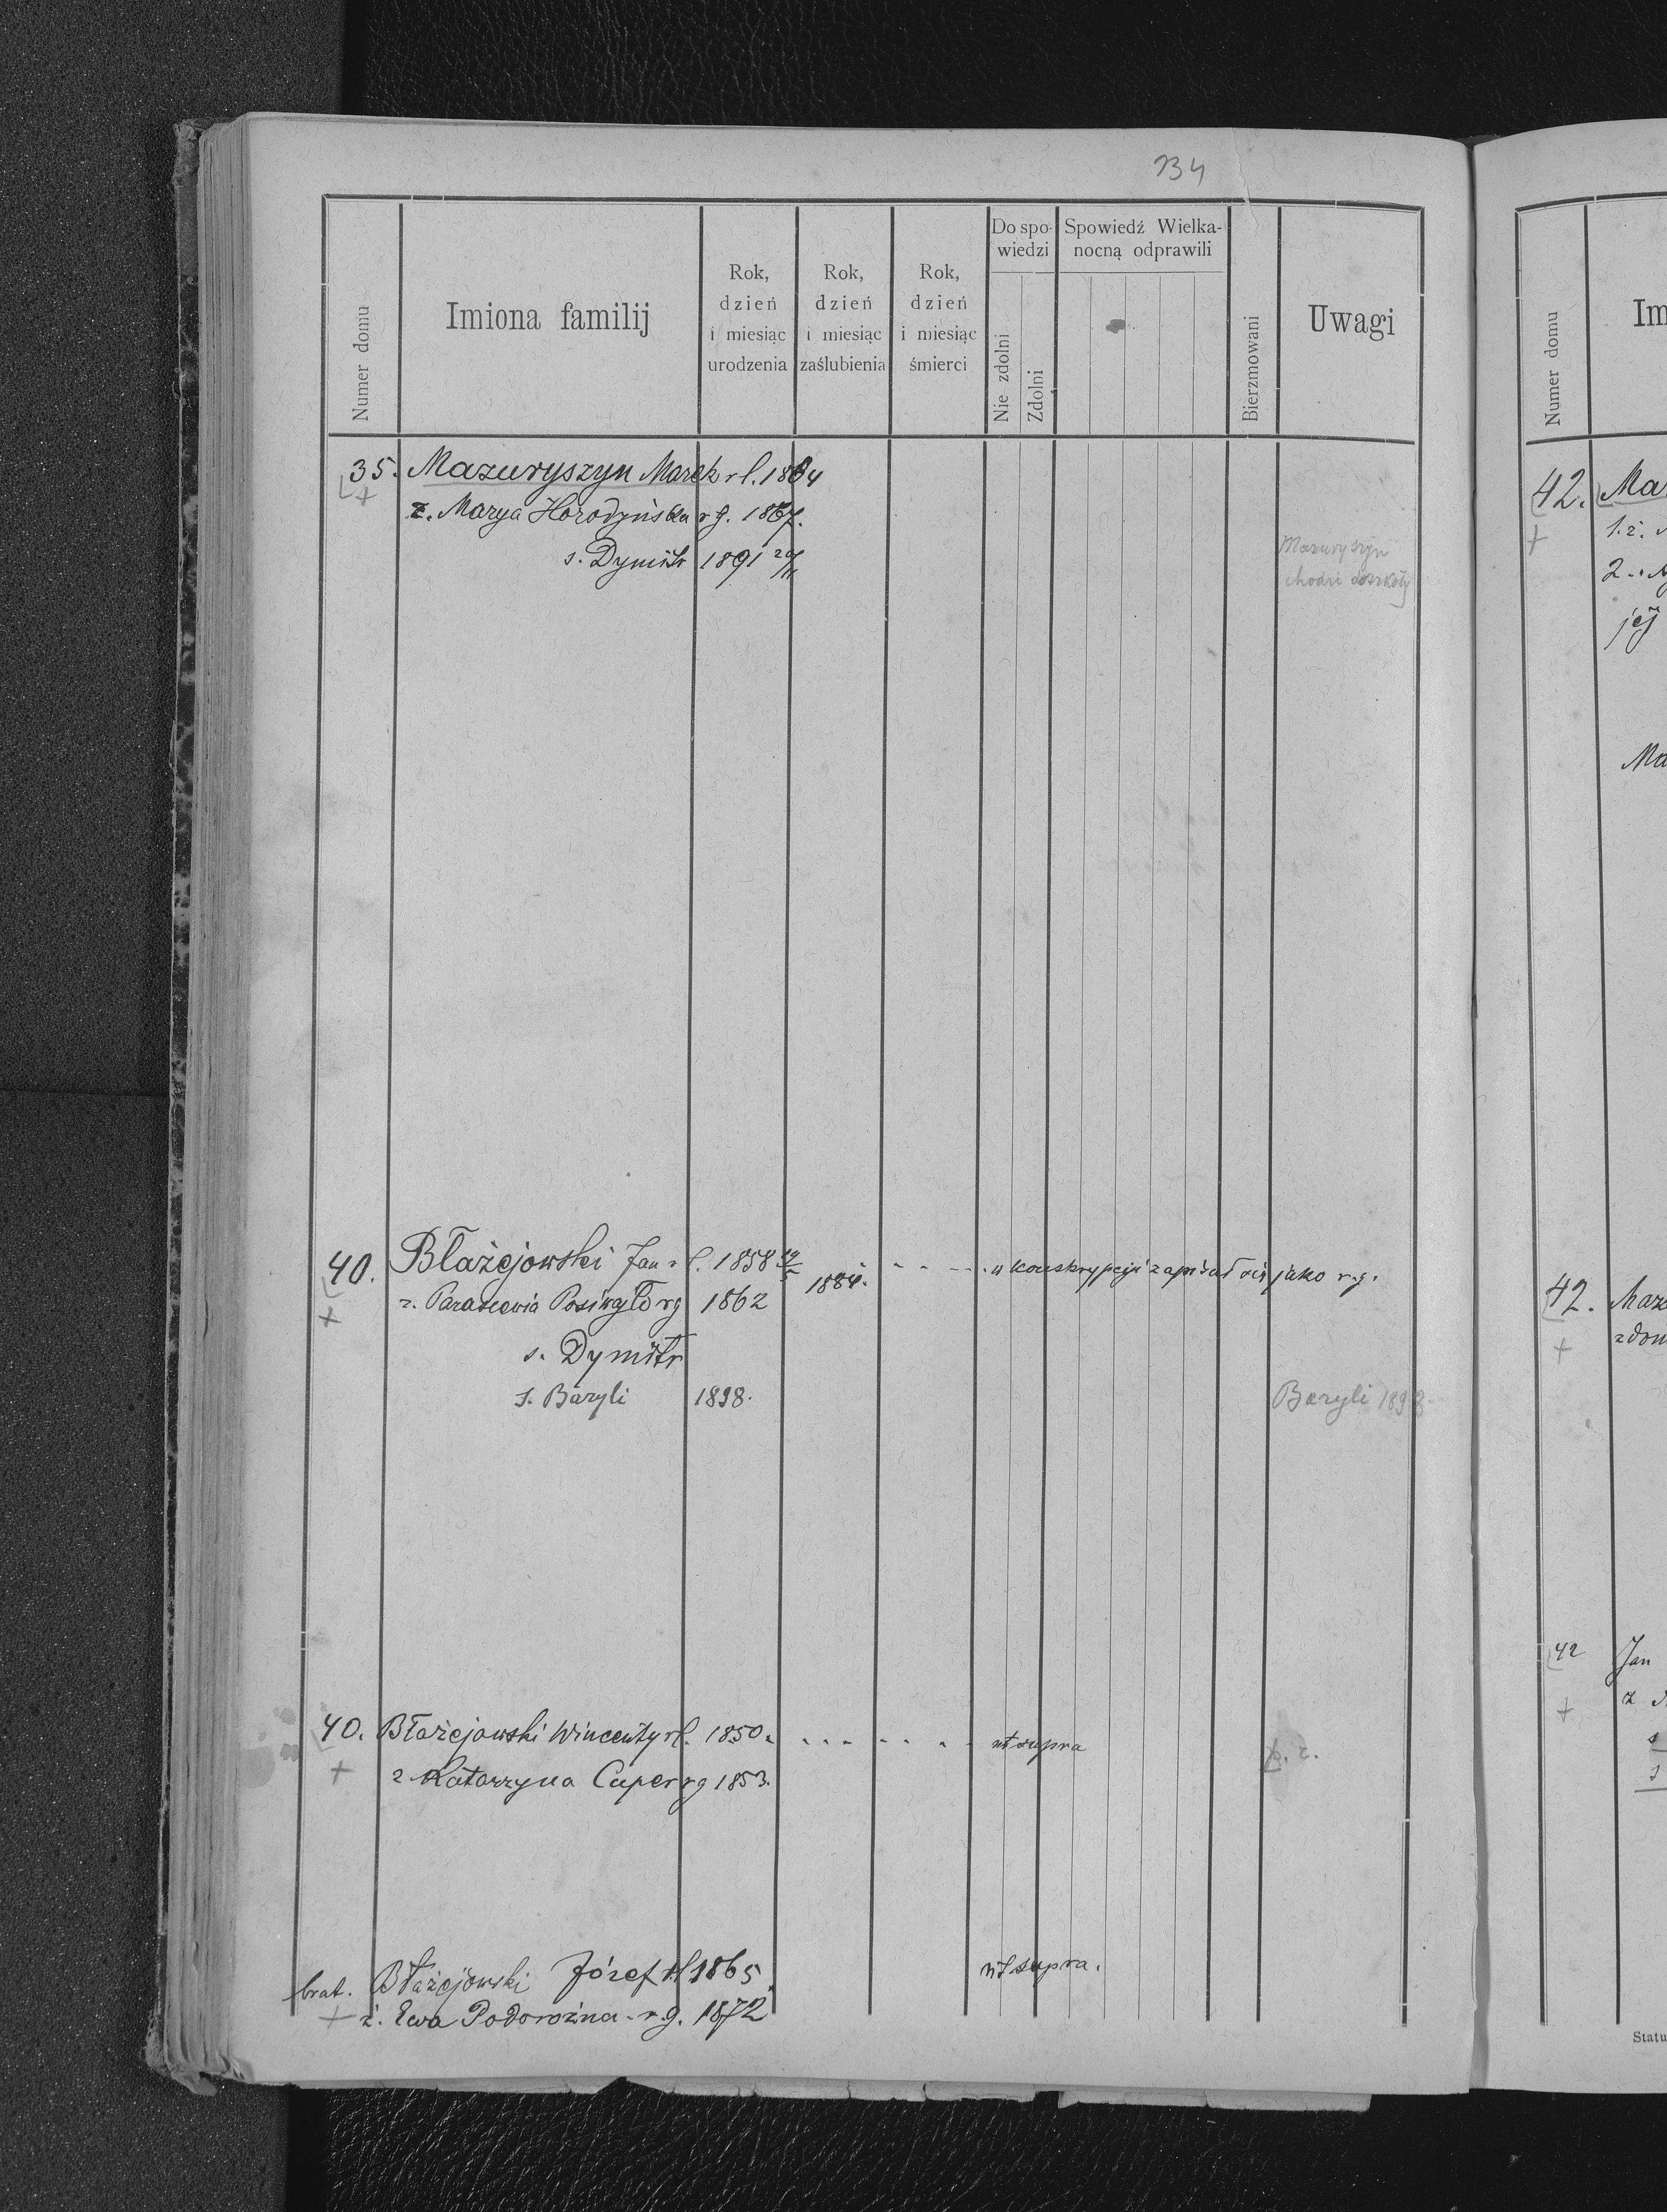 234
Numer domu
Imiona familij
Rok, dzień i miesiąc urodzenia
Rok, dzień i miesiąc zaślubienia
Rok, dzień i miesiąc śmierci
Do spowiedzi
Nie zdolni
Zdolni
Spowiedź Wielkanocną odprawili
Bierzmowani
Uwagi
35. Mazuryszyn Marek rl. 1864
ż. Marya Horodyńska rg. 1867.
s. Dymitr 1891 20/11
Mazuryszyn
chodzi do szkoły
40. Błażejowski Jan rl. 1858 1884. w konskrypcyi zapisał się jako r.g.
ż. Parascewia rg 1862
s. Dymitr
s. Bazyli 1898. Bazyli 1898.
40. Błażejowski Wincenty rl. 1850. ut supra
ż. Katarzyna Caper rg 1853.
brat. Błażejowski Józef rl 1865 ut supra.
ż. Ewa Podorożna r.g. 1872
Numer domu
Im
42.
1. ż.
2.
jej
Ma
42.
42 Jan
Statu